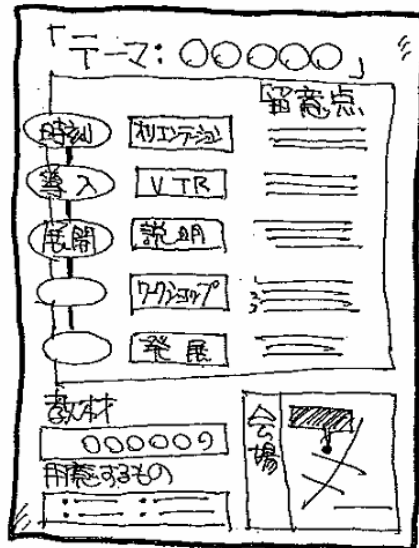 「テーマ：○○○○○」
留意点
時刻 オリエンテーション
導入 VTR
展開 説明
ワークショップ
発展
教材
○○○○○○
用意するもの
会場